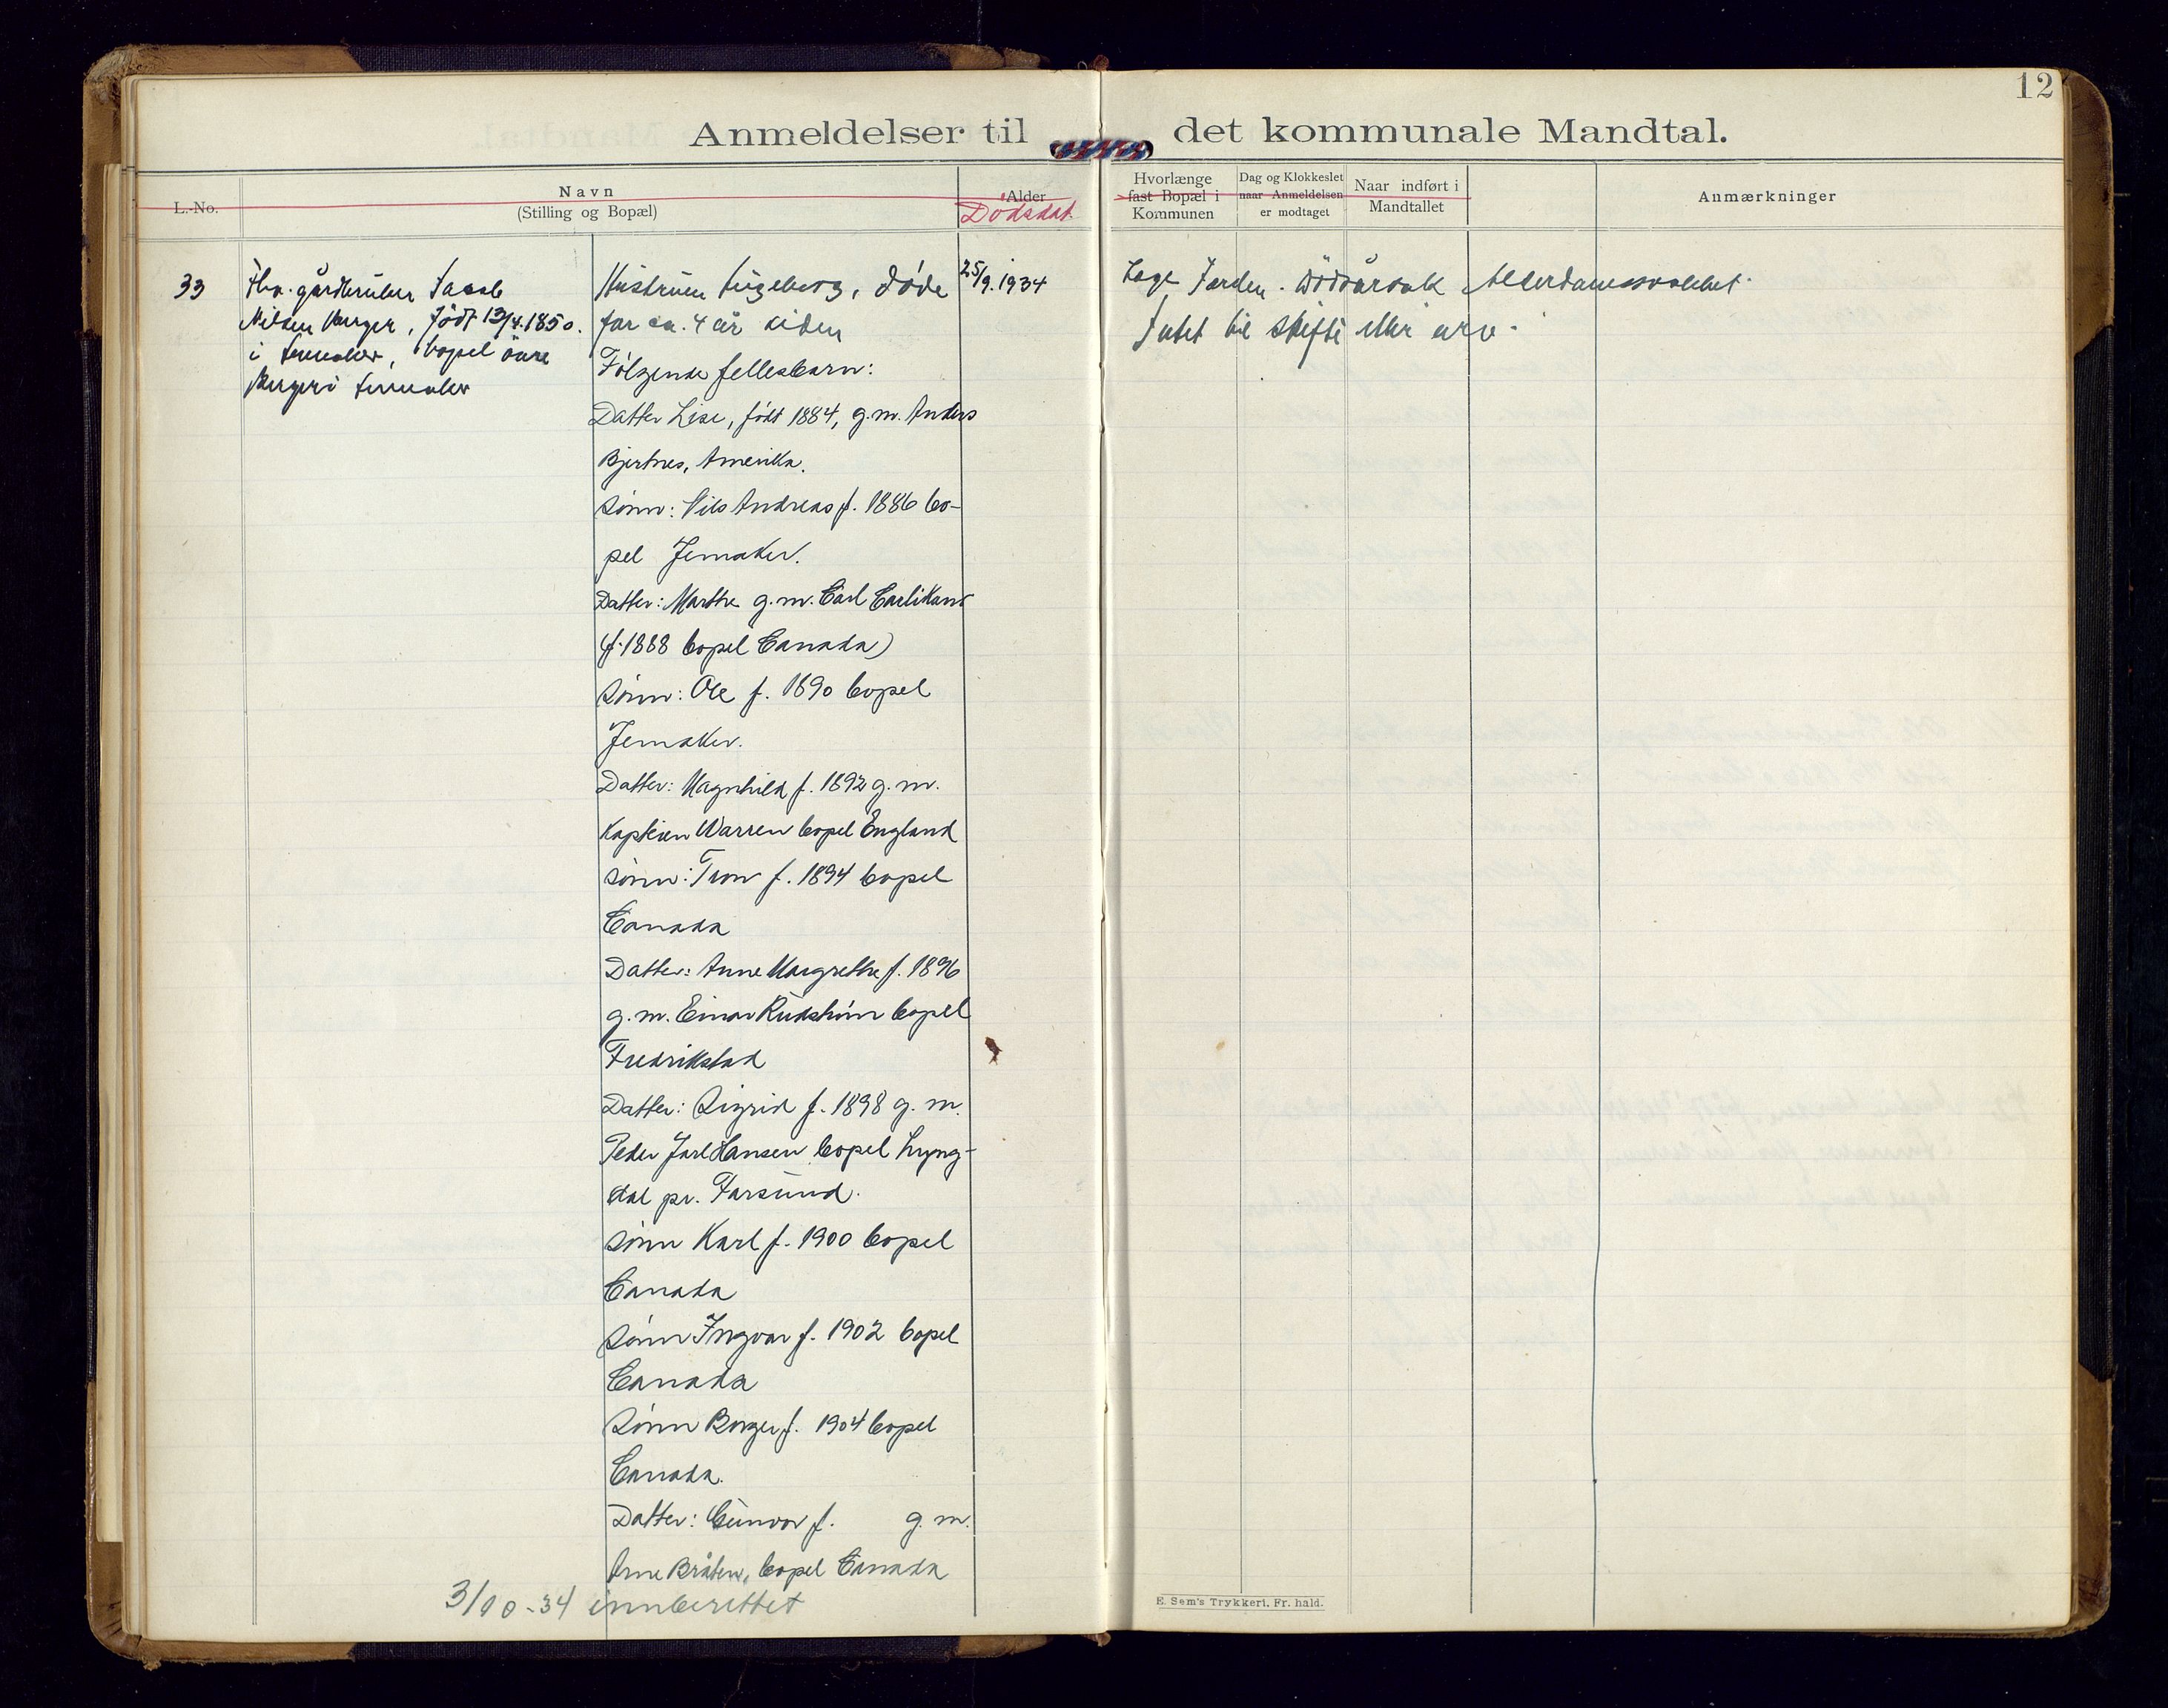 12
Anmeldelser til det kommunale Mandtal.
L.-No.
Navn
(Stilling og Bopæl)
Alder
Dødsdat.
Hvorlænge
fast Bopæl i
Kommunen
Dag og Klokkeslet
naar Anmeldelsen
er modtaget
Naar indført i
Mandtallet
Anmærkninger
33
Fhv. gårdbruker Jacob
Nilsen Berger, født 13/4.1850.
i Jevnaker, bopel øvre
Berger i Jevnaker
Hustruen Ingeborg, døde
for ca. 4 år siden
Følgende fellesbarn:
Datter Lise, født 1884, g.m. Anders
Bjertnes, Amerika.
Sønn: Nils Andreas f. 1886 bo-
pel Jevnaker.
Datter: Marthe g.m. Carl
(f. 1888 bopel Canada)
Sønn: Ole f. 1890 bopel
Jevnaker.
Datter: Magnhild f. 1892 g.m.
Kaptein Warren bopel England
Sønn: Tron f. 1894 bopel
Canada
Datter: Anne Margrethe f. 1896
g.m. Einar bopel
Fredrikstad
Datter: Sigrid f. 1898 g.m.
Peder Jarl Hansen bopel Lyng-
dal pr. Farsund.
Sønn Karl f. 1900 bopel
Canada
Sønn Ingvar f. 1902 bopel
Canada
Sønn Borger f. 1904 bopel
Canada.
Datter: Gunvor f. g.m.
Arne Bråten, bopel Canada
25/9.1934
Lege Jorden. Dødsårsak Alderdomssvakhet.
Intet til skifte eller arv.
3/10-34 innberettet
E. Sem's Trykkeri. Fr. hald.